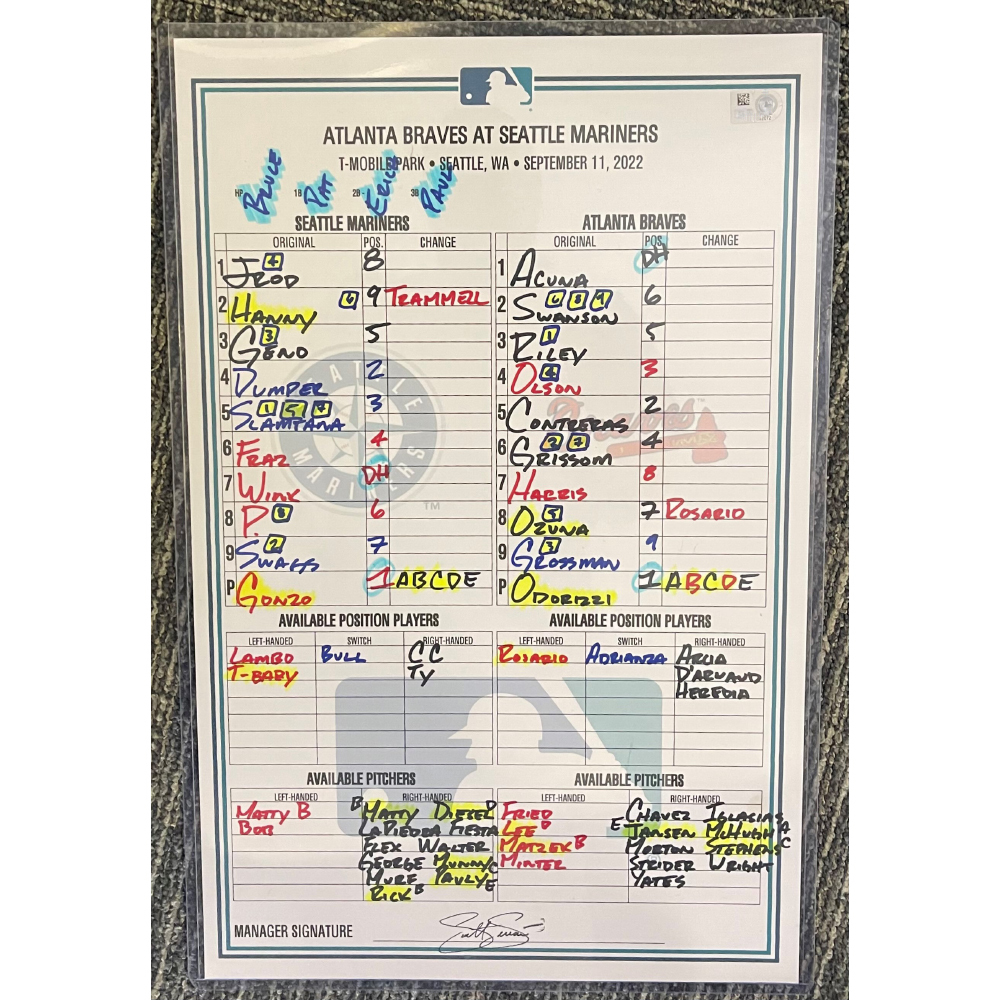 ATLANTA BRAVES AT SEATTLE MARINERS
T-MOBILE PARK • SEATTLE, WA • SEPTEMBER 11, 2022
HP BRUCE 1B PAT 2B ERICH 3B PAUL
SEATTLE MARINERS
ORIGINAL POS. CHANGE
1 JROD 4 8
2 HANNY 6 9 TRAMMELL
3 GENO 3 5
4 DUMPER 2
5 SLAMTANA 1 5 4 3
6 FRAZ 4
7 WINK DH
8 P. 8 6
9 SWAGGS 2 7
P GONZO 1 ABCDE
ATLANTA BRAVES
ORIGINAL POS. CHANGE
1 ACUNA DH
2 SWANSON 6
3 RILEY 1 5
4 OLSON 4 3
5 CONTRERAS 2
6 GRISSOM 4
7 HARRIS 8
8 OZUNA 5 7 ROSARIO
9 GROSSMAN 3 9
P ODORIZZI 1 ABCDE
SEATTLE MARINERS
TM
Braves
AVAILABLE POSITION PLAYERS
LEFT-HANDED SWITCH RIGHT-HANDED
LAMBO BULL CC
T-BABY TY
AVAILABLE POSITION PLAYERS
LEFT-HANDED SWITCH RIGHT-HANDED
ROSARIO ADRIANZA ARCIA
D'ARNAUD
HEREDIA
AVAILABLE PITCHERS
LEFT-HANDED RIGHT-HANDED
MATTY B B MATTY DIESEL D
BOB LAPIEDRA FIESTA
FLEX WALTER
GEORGE MUNNY C
MURF PAULY E
RICK B
AVAILABLE PITCHERS
LEFT-HANDED RIGHT-HANDED
FRIED CHAVEZ IGLASIAS
LEE D E JANSEN MCHUGH A
MATZEK B MORTON STEPHENS C
MINTER STRIDER WRIGHT
YATES
MANAGER SIGNATURE